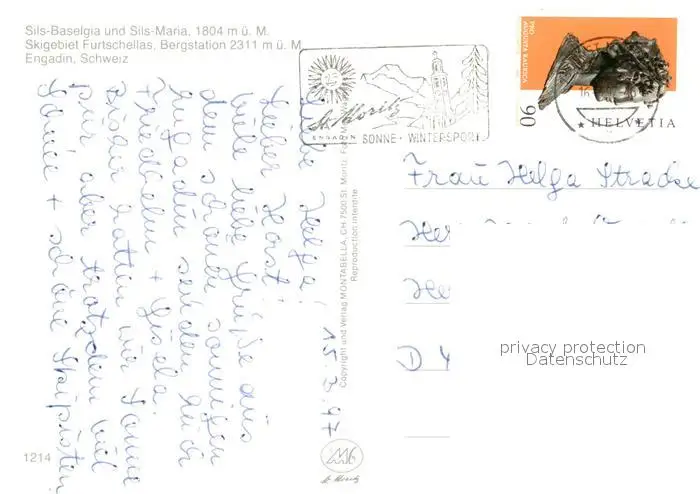 Sils-Baselgia und Sils-Maria, 1804 m ü. M.
Skigebiet Furtschellas, Bergstation 2311 m ü. M
Engadin, Schweiz
St. Moritz
ENGADIN SONNE · WINTERSPORT
PRO
AUGUSTA RAURICA
90
HELVETIA
15.3.97
Liebe Helga!
Lieber Horst!
Viele liebe Grüße aus
dem schönen sonnigen
Engadin senden Euch
Friedhelm + Gisela.
Bisher hatten wir Sonne
pur aber trotzdem viel
Schnee + schöne Skipisten
Copyright und Verlag MONTABELLA, CH 7500 St. Moritz
Reproduction interdite
Frau Helga
D 4
privacy protection
Datenschutz
1214
St. Moritz